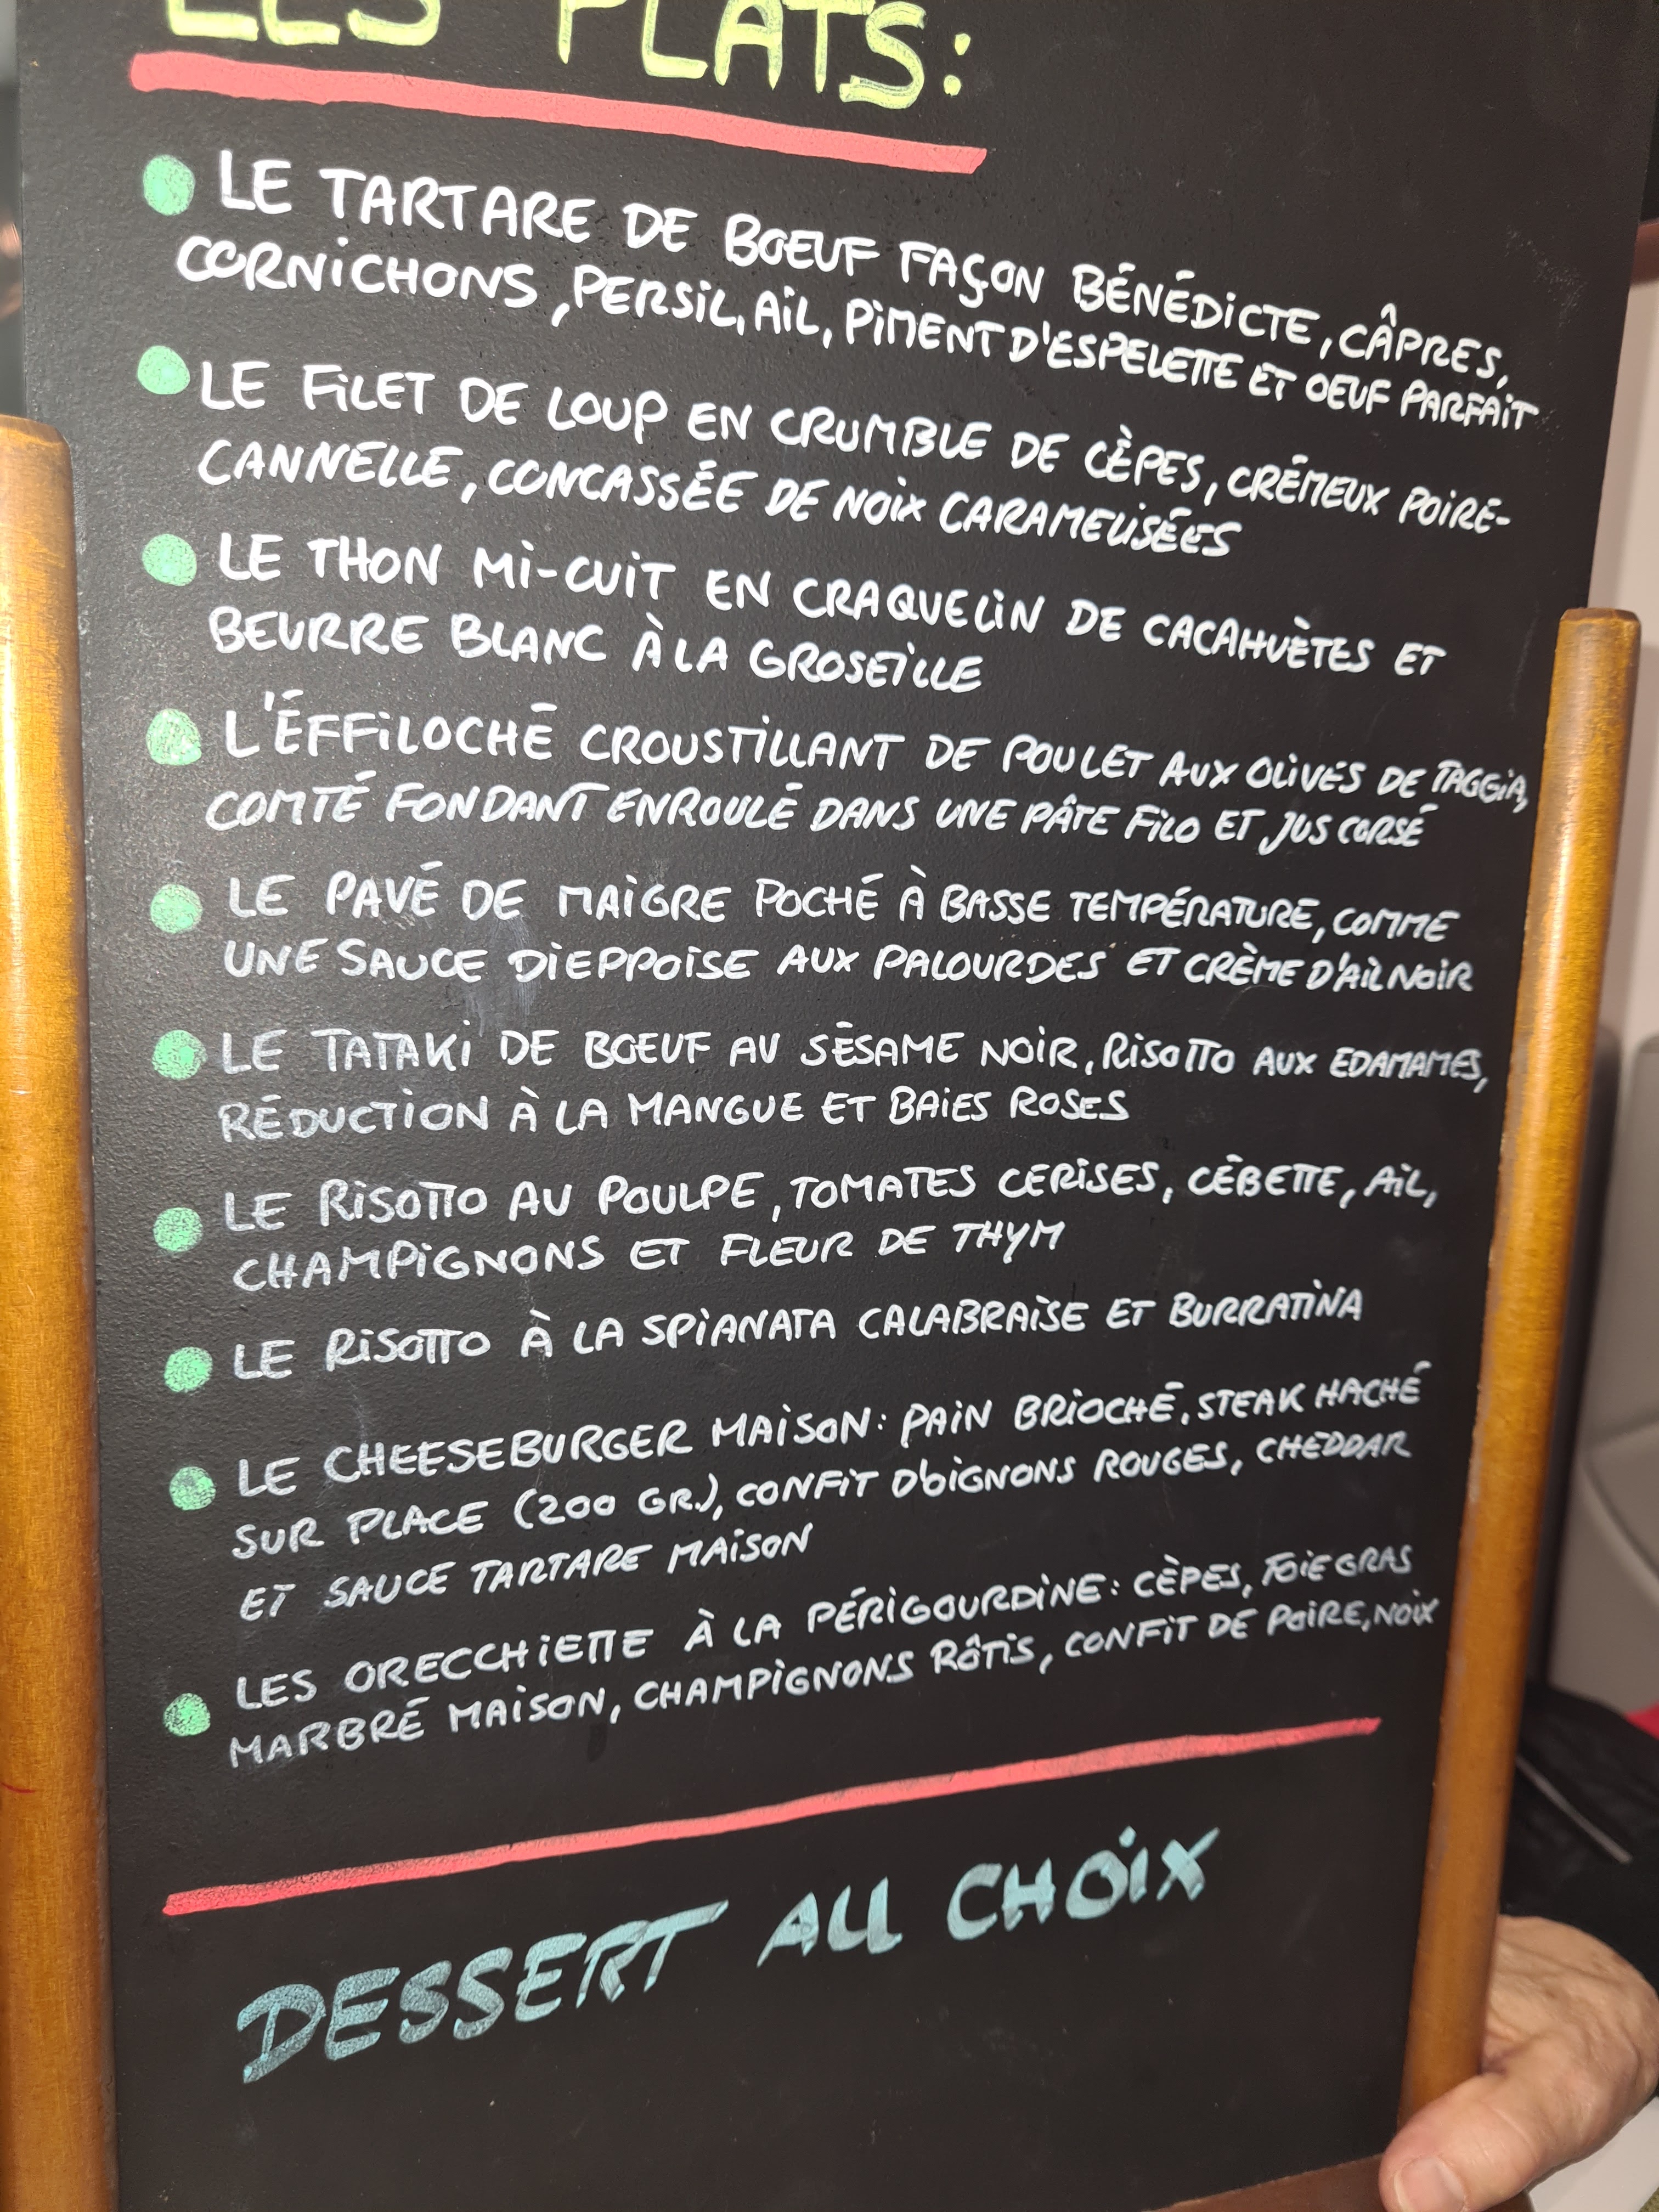 LES PLATS:
LE TARTARE DE BOEUF FAÇON BÉNÉDICTE, CÂPRES,
CORNICHONS, PERSIL, AIL, PIMENT D'ESPELETTE ET OEUF PARFAIT
LE FILET DE LOUP EN CRUMBLE DE CÈPES, CRÉMEUX POIRE-
CANNELLE, CONCASSÉE DE NOIX CARAMELISÉES
LE THON MI-CUIT EN CRAQUELIN DE CACAHUÈTES ET
BEURRE BLANC À LA GROSEILLE
L'ÉFFILOCHÉ CROUSTILLANT DE POULET AUX OLIVES DE TAGGIA,
COMTÉ FONDANT ENROULÉ DANS UNE PÂTE FILO ET JUS CORSÉ
LE PAVÉ DE MAIGRE POCHÉ À BASSE TEMPÉRATURE, COMME
UNE SAUCE DIEPPOISE AUX PALOURDES ET CRÈME D'AIL NOIR
LE TATAKI DE BOEUF AU SÉSAME NOIR, RISOTTO AUX EDAMAMES,
RÉDUCTION À LA MANGUE ET BAIES ROSES
LE RISOTTO AU POULPE, TOMATES CERISES, CÉBETTE, AIL,
CHAMPIGNONS ET FLEUR DE THYM
LE RISOTTO À LA SPIANATA CALABRAISE ET BURRATINA
LE CHEESEBURGER MAISON: PAIN BRIOCHÉ, STEAK HACHÉ
SUR PLACE (200 GR.), CONFIT D'OIGNONS ROUGES, CHEDDAR
ET SAUCE TARTARE MAISON
LES ORECCHIETTE À LA PÉRIGOURDINE: CÈPES, FOIE GRAS
MARBRÉ MAISON, CHAMPIGNONS RÔTIS, CONFIT DE POIRE, NOIX
DESSERT AU CHOIX